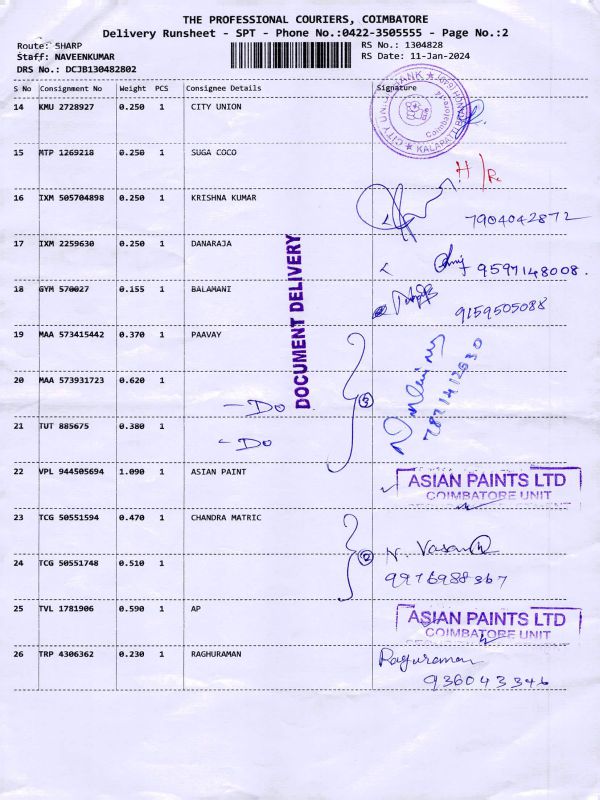 THE PROFESSIONAL COURIERS, COIMBATORE
Delivery Runsheet - SPT - Phone No.:0422-3505555 - Page No.:2
Route: SHARP
RS No.: 1304828
Staff: NAVEENKUMAR
RS Date: 11-Jan-2024
DRS No.: DCJB130482802
S No Consignment No Weight PCS Consignee Details Signature
14 KMU 2728927 0.250 1 CITY UNION
CITY UNION BANK
KALAPATTI BRANCH
Coimbatore
15 MTP 1269218 0.250 1 SUGA COCO
16 IXM 505704898 0.250 1 KRISHNA KUMAR
7904042872
17 IXM 2259630 0.250 1 DANARAJA
9597148008.
18 GYM 570027 0.155 1 BALAMANI
9159505088
DOCUMENT DELIVERY
19 MAA 573415442 0.370 1 PAAVAY
20 MAA 573931723 0.620 1
- Do
③
21 TUT 885675 0.380 1
- Do
22 VPL 944505694 1.090 1 ASIAN PAINT
ASIAN PAINTS LTD
COIMBATORE UNIT
23 TCG 50551594 0.470 1 CHANDRA MATRIC
N. Vasan
24 TCG 50551748 0.510 1
②
9976988367
25 TVL 1781906 0.590 1 AP
ASIAN PAINTS LTD
COIMBATORE UNIT
26 TRP 4306362 0.230 1 RAGHURAMAN
Raguraman
936043346